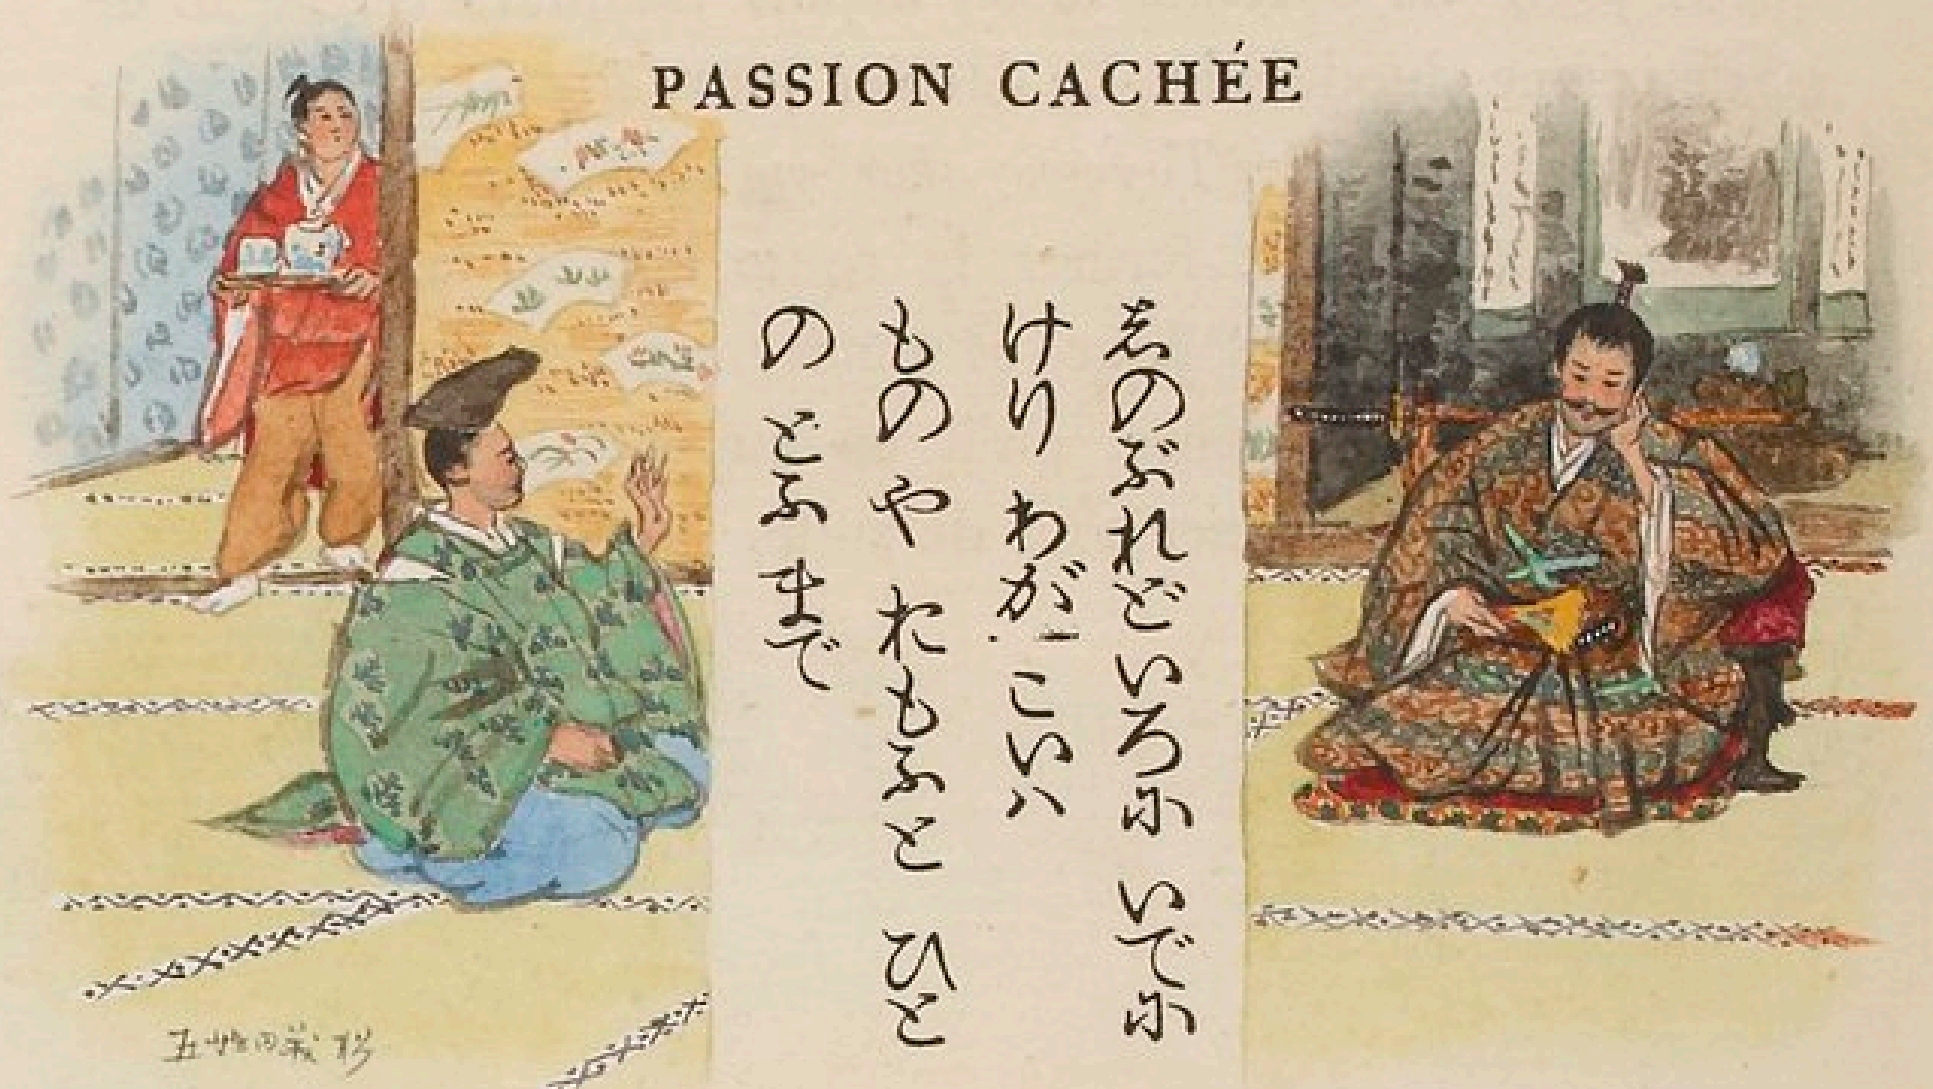 PASSION CACHÉE
志のぶれどいろ尓 いで尓
けり わがこいハ
ものや れもふと ひと
の とふまで